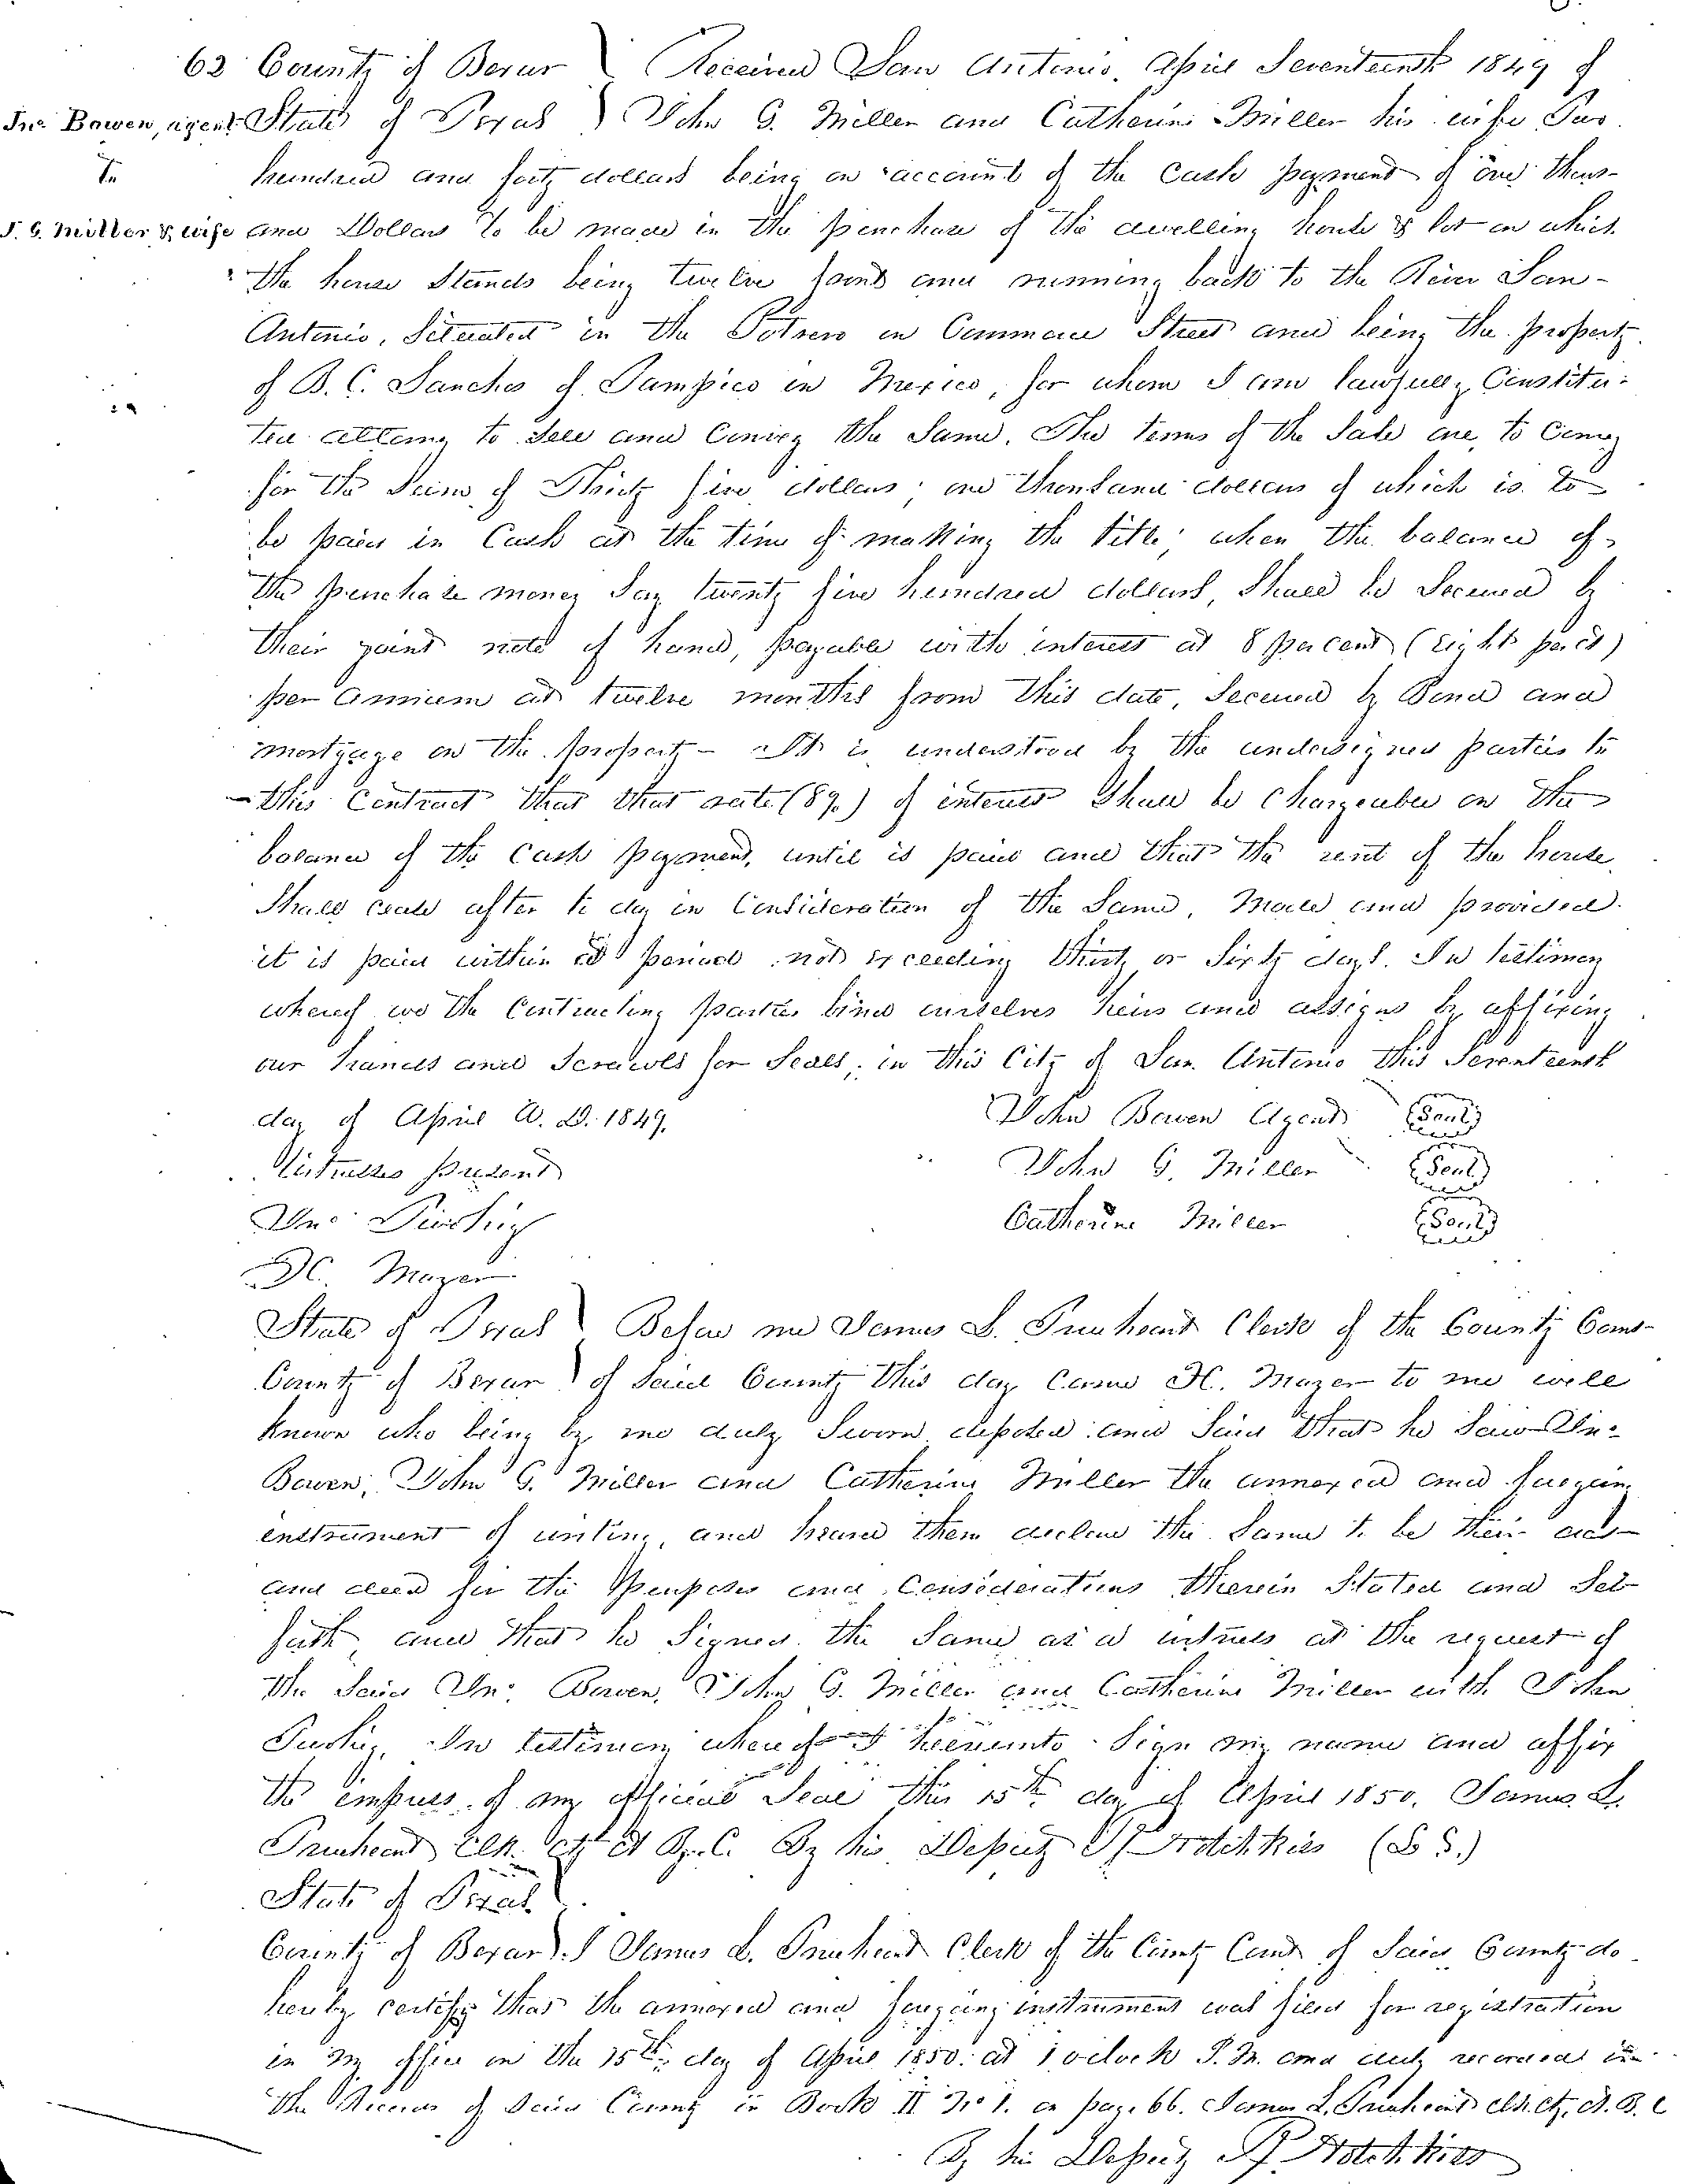 62 County of Bexar } Received San Antonio, April Seventeenth 1849 of
Jno. Bowen, agent State of Texas } John G. Miller and Catherine Miller his wife Two
To hundred and forty dollars being on account of the Cash payment of one thous-
J. G. Miller & wife and Dollars to be made in the purchase of the dwelling house & lot on which
the house Stands being twelve front and running back to the River San-
Antonio, Situated in the Potrero on Commerce Street and being the property
of B. C. Sanches of Tampico in Mexico, for whom I am lawfully Constitu-
ted attorney to Sell and Convey the Same. The terms of the Sale are, to Convey
for the Sum of Thirty five dollars; one thousand dollars of which is to
be paid in Cash at the time of making the title; when the balance of
the purchase money Say twenty five hundred dollars, Shall be Secured by
their joint note of hand, payable with interest at 8 percent (Eight per ct)
per Annum at twelve months from this date, Secured by Bond and
mortgage on the property - It is understood by the undersigned parties to
this Contract that that rate (8%) of interest Shall be Chargeable on the
balance of the Cash payment, until is paid and that the rent of the house
Shall cease after to day in Consideration of the Same, Made and provided
it is paid within a period not exceeding thirty or Sixty days. In testimony
whereof we the Contracting parties bind ourselves heirs and assigns by affixing
our hands and Scrawls for Seals, in this City of San Antonio this Seventeenth
day of April A. D. 1849. John Bowen Agent (Seal)
Witnesses present John G. Miller (Seal)
Jno. Catherine Miller (Seal)
H. Mazer
State of Texas } Before me James L. Trueheart Clerk of the County Court
County of Bexar } of Said County this day Came H. Mazer to me well
known who being by me duly Sworn deposed and Said that he Saw Jno.
Bowen, John G. Miller and Catherine Miller the annexed and foregoing
instrument of writing, and heard them declare the Same to be their act
and deed for the purposes and Considerations therein Stated and Set
forth, and that he Signed the Same as a witness at the request of
the Said Jno. Bowen, John G. Miller and Catherine Miller with John
In testimony whereof I hereunto Sign my name and affix
the impress of my official Seal this 15th day of April 1850. James L.
Trueheart Clk. Cty Ct B. C. By his Deputy Hotchkiss (L S.)
State of Texas }
County of Bexar } I James L. Trueheart Clerk of the County Court of Said County do
hereby certify that the annexed and foregoing instrument was filed for registration
in my office on the 15th day of April 1850. at 1 oclock P. M. and duly recorded in
the Records of Said County in Book II No 1. on page 66. James L. Trueheart Clk. Cty. Ct. B. C
By his Deputy Hotchkiss